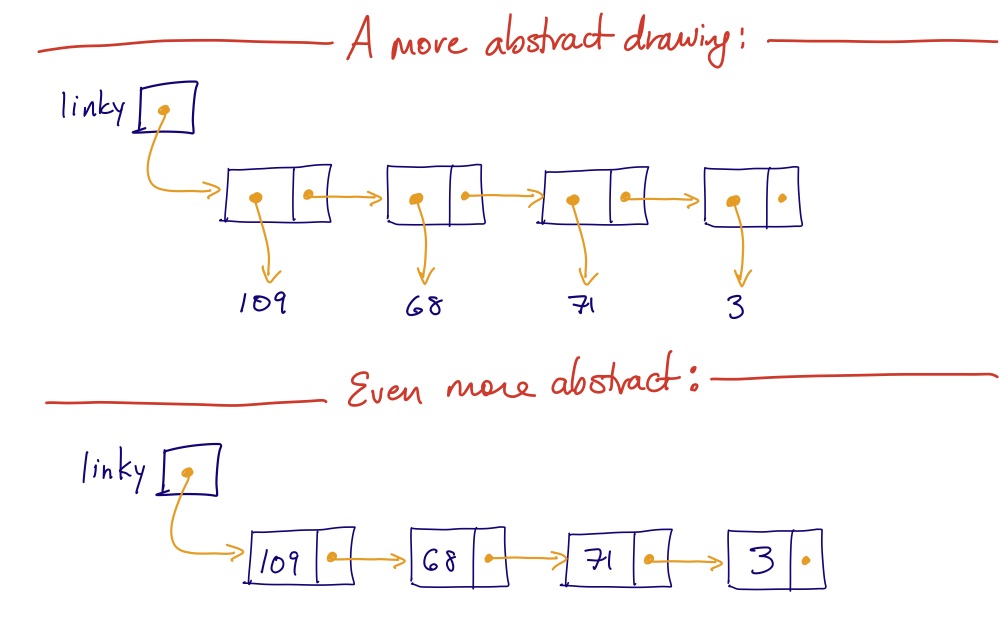 A more abstract drawing:
linky
109 68 71 3
Even more abstract:
linky
109 68 71 3